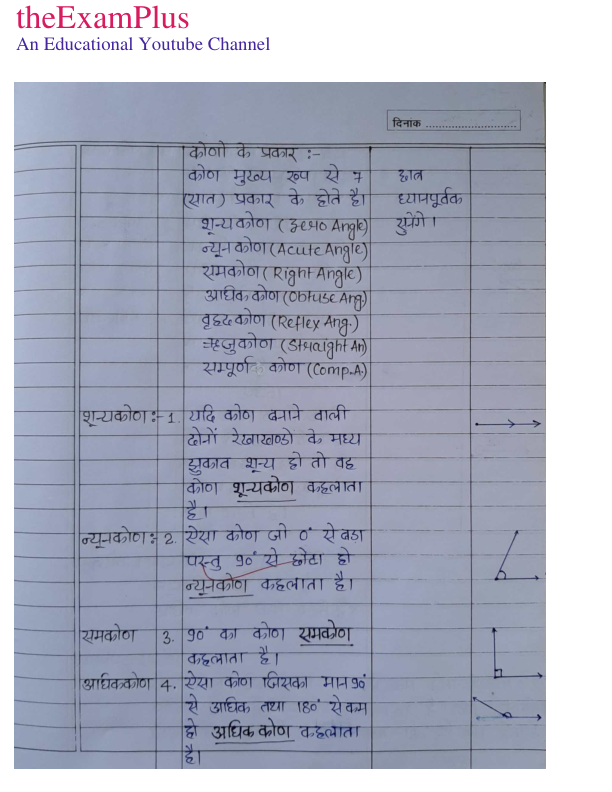 theExamPlus
An Educational Youtube Channel
दिनाक ..............................
कोणों के प्रकार :-
कोण मुख्य रूप से 7 छात्र
(सात) प्रकार के होते है। ध्यानपूर्वक
शून्यकोण (Zero Angle) सुनेंगे।
न्यूनकोण (Acute Angle)
समकोण (Right Angle)
अधिक कोण (Obtuse Ang)
वृहदकोण (Reflex Ang.)
ऋजुकोण (Straight An)
सम्पूर्ण कोण (Comp.A.)
शून्यकोण :- 1. यदि कोण बनाने वाली
दोनों रेखाखण्डो के मध्य
झुकाव शून्य हो तो वह
कोण शून्यकोण कहलाता
है।
न्यूनकोण :- 2. ऐसा कोण जो 0° से बड़ा
परन्तु 90° से छोटा हो
न्यूनकोण कहलाता है।
समकोण 3. 90° का कोण समकोण
कहलाता है।
अधिककोण 4. ऐसा कोण जिसका मान 90°
से अधिक तथा 180° से कम
हो अधिक कोण कहलाता
है।